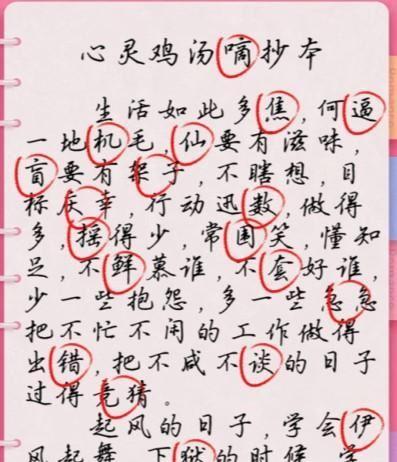 心灵鸡汤嘀抄本
生活如此多焦,何逼
一地机毛,仙要有滋味,
盲要有子,不瞎想,目
标庆幸,行动迅数,做得
多,摇得少,常围笑,懂知
足,不鲜慕谁,不套好谁,
少一些抱怨,多一些急
把不忙不闲的工作做得
出错,把不咸不谈的日子
过得竞猜。
起风的日子,学会伊
风起舞,下狱的时候,学